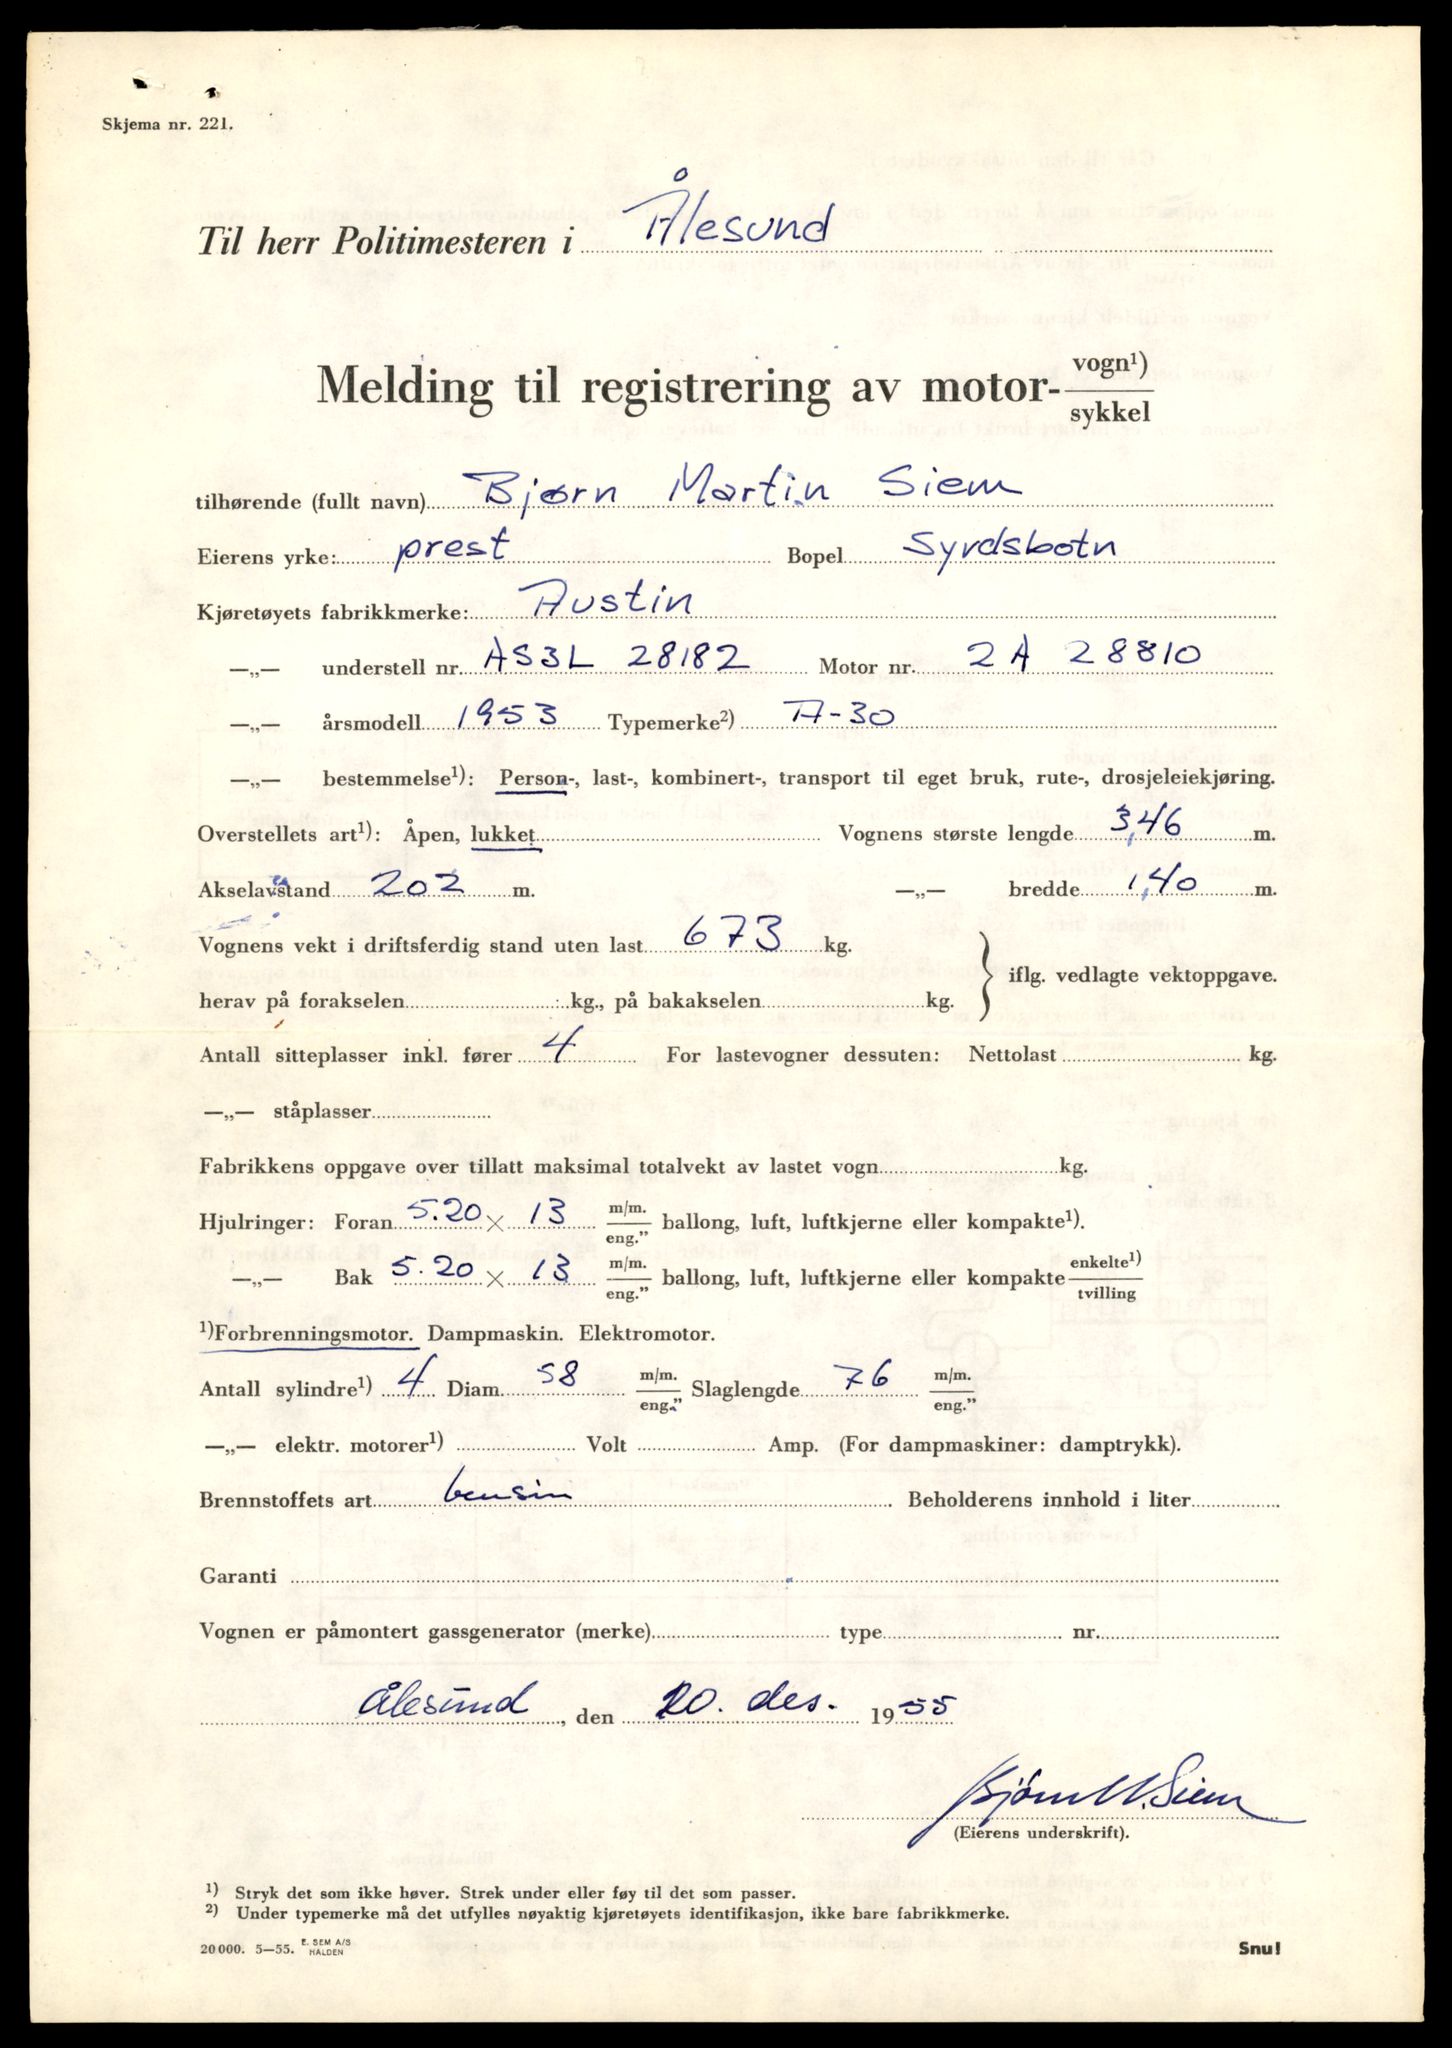 Skjema nr. 221.
Til herr Politimesteren i Ålesund
Melding til registrering av motor- vogn¹) / sykkel
tilhørende (fullt navn) Bjørn Martin Siem
Eierens yrke: prest Bopel Syvdsbotn
Kjøretøyets fabrikkmerke: Austin
—„— understell nr. AS3L 28182 Motor nr. 2A 28810
—„— årsmodell 1953 Typemerke²) A-30
—„— bestemmelse¹): Person-, last-, kombinert-, transport til eget bruk, rute-, drosjeleiekjøring.
Overstellets art¹): Åpen, lukket Vognens største lengde 3,46 m.
Akselavstand 202 m. —„— bredde 1,40 m.
Vognens vekt i driftsferdig stand uten last 673 kg.
iflg. vedlagte vektoppgave.
herav på forakselen kg., på bakakselen kg.
Antall sitteplasser inkl. fører 4 For lastevogner dessuten: Nettolast kg.
—„— ståplasser
Fabrikkens oppgave over tillatt maksimal totalvekt av lastet vogn kg.
Hjulringer: Foran 5.20 × 13 m/m. / eng." ballong, luft, luftkjerne eller kompakte¹).
—„— Bak 5.20 × 13 m/m. / eng." ballong, luft, luftkjerne eller kompakte enkelte¹) / tvilling
¹)Forbrenningsmotor. Dampmaskin. Elektromotor.
Antall sylindre¹) 4 Diam. 58 m/m. / eng." Slaglengde 76 m/m. / eng."
—„— elektr. motorer¹) Volt Amp. (For dampmaskiner: damptrykk).
Brennstoffets art bensin Beholderens innhold i liter
Garanti
Vognen er påmontert gassgenerator (merke) type nr.
Ålesund, den 20. des. 1955
Bjørn M. Siem
(Eierens underskrift).
¹) Stryk det som ikke høver. Strek under eller føy til det som passer.
²) Under typemerke må det utfylles nøyaktig kjøretøyets identifikasjon, ikke bare fabrikkmerke.
20 000. 5—55. E. SEM A/S HALDEN
Snu!